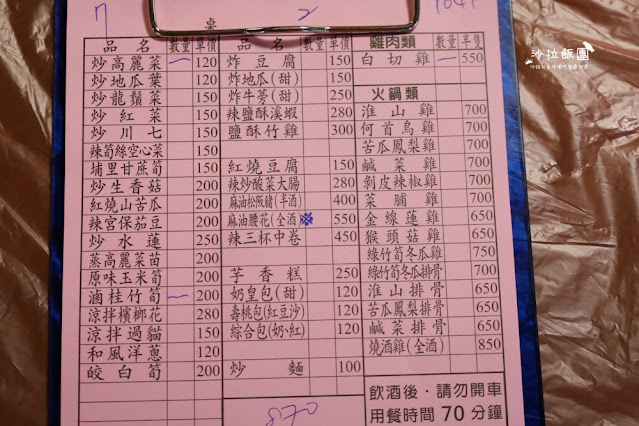 7 桌 2 1047
品名 數量 單價 品名 數量 單價 雞肉類 數量 半隻
炒高麗菜 一 120 炸豆腐 150 白切雞 一 550
炒地瓜葉 120 炸地瓜(甜) 150
炒龍鬚菜 150 炸牛蒡(甜) 250 火鍋類
炒紅菜 150 辣鹽酥溪蝦 280 淮山雞 700
炒川七 150 鹽酥竹雞 300 何首烏雞 700
辣筍絲空心菜 150 苦瓜鳳梨雞 700
埔里甘蔗筍 150 紅燒豆腐 150 鹹菜雞 700
炒生香菇 200 辣炒酸菜大腸 280 剝皮辣椒雞 700
紅燒山苦瓜 200 麻油松阪豬(半酒) 400 菜脯雞 700
辣宮保茄豆 200 麻油腰花(全酒)※ 550 金線蓮雞 650
炒水蓮 250 辣三杯中卷 450 猴頭菇雞 650
蒸高麗菜苗 200 綠竹筍冬瓜雞 750
原味玉米筍 200 芋香糕 250 綠竹筍冬瓜排骨 700
滷桂竹筍 一 200 奶皇包(甜) 120 淮山排骨 650
涼拌檳榔花 280 壽桃包(紅豆沙) 120 苦瓜鳳梨排骨 650
涼拌過貓 150 綜合包(奶、紅) 120 鹹菜排骨 650
和風洋蔥 120 燒酒雞(全酒) 850
皎白筍 200 炒麵 100
飲酒後·請勿開車
870 用餐時間70分鐘
沙拉飯團